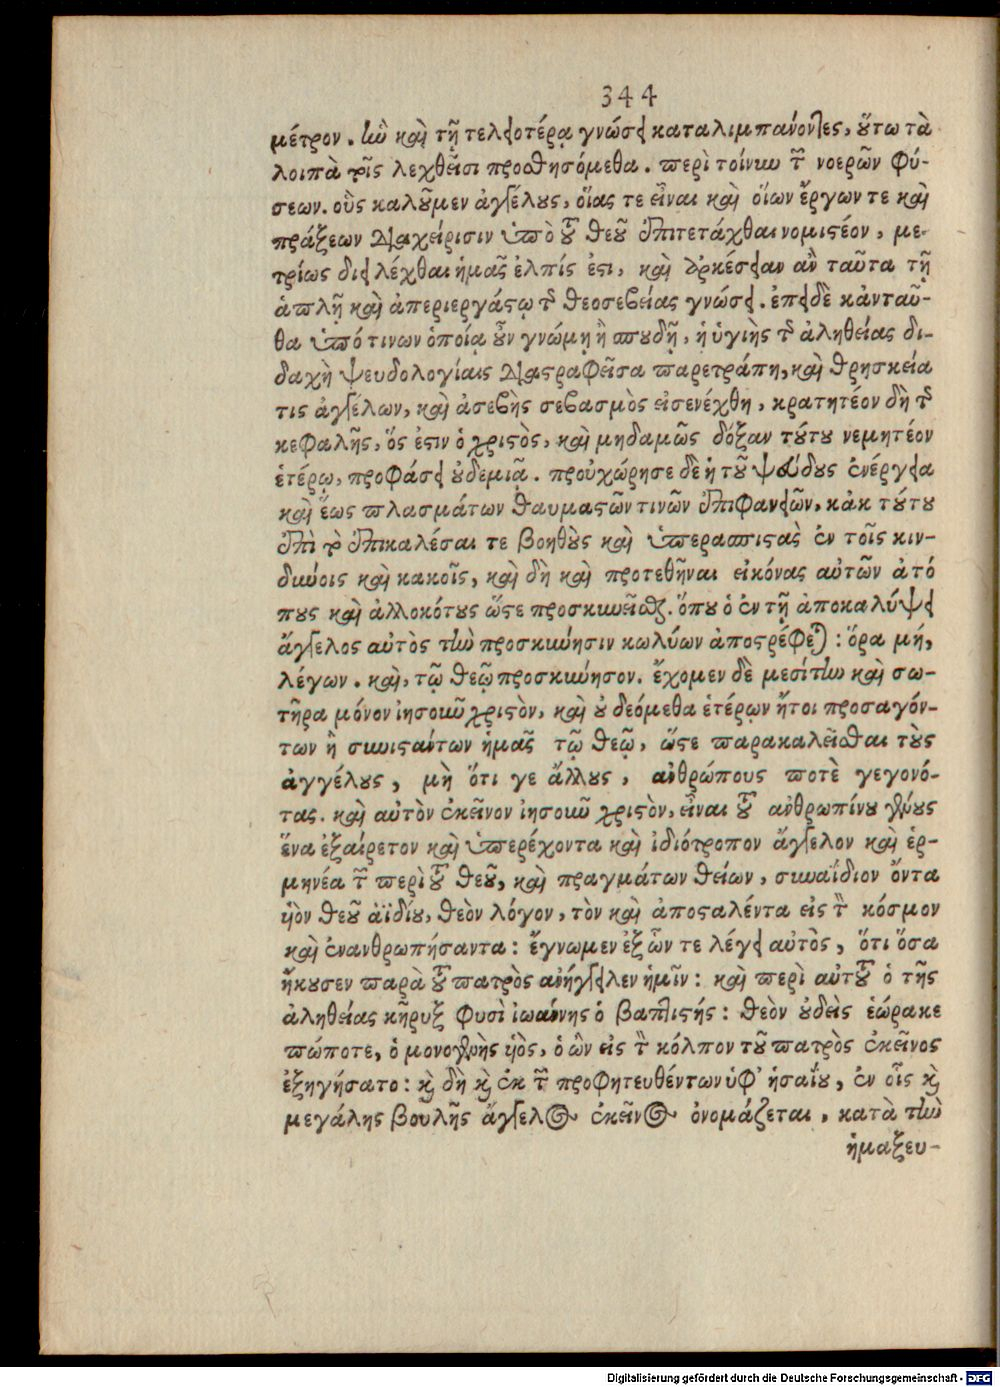 344
μέτρον. ἣν καὶ τῇ τελειοτέρᾳ γνώσει καταλιμπάνοντες, οὕτω τὰ
λοιπὰ τοῖς λεχθεῖσι προσθησόμεθα. περὶ τοίνυν τῶν νοερῶν φύ-
σεων. οὓς καλοῦμεν ἀγγέλους, οἵας τε εἶναι καὶ οἵων ἔργων τε καὶ
πράξεων διαχείρισιν ὑπὸ τοῦ θεοῦ ἐπιτετάχθαι νομιστέον, με-
τρίως διειλέχθαι ἡμᾶς ἐλπίς ἐστι, καὶ ἀρκέσειαν ἂν ταῦτα τῇ
ἁπλῇ καὶ ἀπεριεργάστῳ τῆς θεοσεβείας γνώσει. ἐπεὶ δὲ κἀνταῦ-
θα ὑπό τινων ὁποίᾳ οὖν γνώμῃ ἢ σπουδῇ, ἡ ὑγιὴς τῆς ἀληθείας δι-
δαχὴ ψευδολογίαις διαστραφεῖσα παρετράπη, καὶ θρησκεία
τις ἀγγέλων, καὶ ἀσεβὴς σεβασμὸς εἰσενέχθη, κρατητέον δὴ τῆς
κεφαλῆς, ὅς ἐστιν ὁ χριστὸς, καὶ μηδαμῶς δόξαν τούτου νεμητέον
ἑτέρῳ, προφάσει οὐδεμιᾷ. προὐχώρησε δὲ ἡ τοῦ ψεύδους ἐνέργεια
καὶ ἕως πλασμάτων θαυμαστῶν τινῶν ἐπιφανειῶν, κἀκ τούτου
ἐπὶ τὸ ἐπικαλέσαι τε βοηθοὺς καὶ ὑπερασπιστὰς ἐν τοῖς κιν-
δύνοις καὶ κακοῖς, καὶ δὴ καὶ προτεθῆναι εἰκόνας αὐτῶν ἀτό
πους καὶ ἀλλοκότους ὥστε προσκυνεῖσθαι. ὅπου ὁ ἐν τῇ ἀποκαλύψει
ἄγγελος αὐτὸς τὴν προσκύνησιν κωλύων ἀποστρέφεται: ὅρα μή,
λέγων. καὶ, τῷ θεῷ προσκύνησον. ἔχομεν δὲ μεσίτην καὶ σω-
τῆρα μόνον ἰησοῦν χριστὸν, καὶ οὐ δεόμεθα ἑτέρων ἤτοι προσαγόν-
των ἢ συνιστάντων ἡμᾶς τῷ θεῷ, ὥστε παρακαλεῖσθαι τοὺς
ἀγγέλους, μὴ ὅτι γε ἄλλους, ἀνθρώπους ποτὲ γεγονό-
τας. καὶ αὐτὸν ἐκεῖνον ἰησοῦν χριστὸν, εἶναι τοῦ ἀνθρωπίνου γένους
ἕνα ἐξαίρετον καὶ ὑπερέχοντα καὶ ἰδιότροπον ἄγγελον καὶ ἑρ-
μηνέα τῶν περὶ τοῦ θεοῦ, καὶ πραγμάτων θείων, συναΐδιον ὄντα
υἱὸν θεοῦ ἀϊδίου, θεὸν λόγον, τὸν καὶ ἀποσταλέντα εἰς τὸν κόσμον
καὶ ἐνανθρωπήσαντα: ἔγνωμεν ἐξ ὧν τε λέγει αὐτὸς, ὅτι ὅσα
ἤκουσεν παρὰ τοῦ πατρὸς ἀνήγγειλεν ἡμῖν: καὶ περὶ αὐτοῦ ὁ τῆς
ἀληθείας κῆρυξ φησὶ ἰωάννης ὁ βαπτιστής: θεὸν οὐδεὶς ἑώρακε
πώποτε, ὁ μονογενὴς υἱὸς, ὁ ὢν εἰς τὸν κόλπον τοῦ πατρὸς ἐκεῖνος
ἐξηγήσατο: καὶ δὴ καὶ ἐκ τῶν προφητευθέντων ὑφ’ ἡσαΐου, ἐν οἷς καὶ
μεγάλης βουλῆς ἄγγελος ἐκεῖνος ὀνομάζεται, κατὰ τὴν
ἡμαξευ-
Digitalisierung gefördert durch die Deutsche Forschungsgemeinschaft - DFG